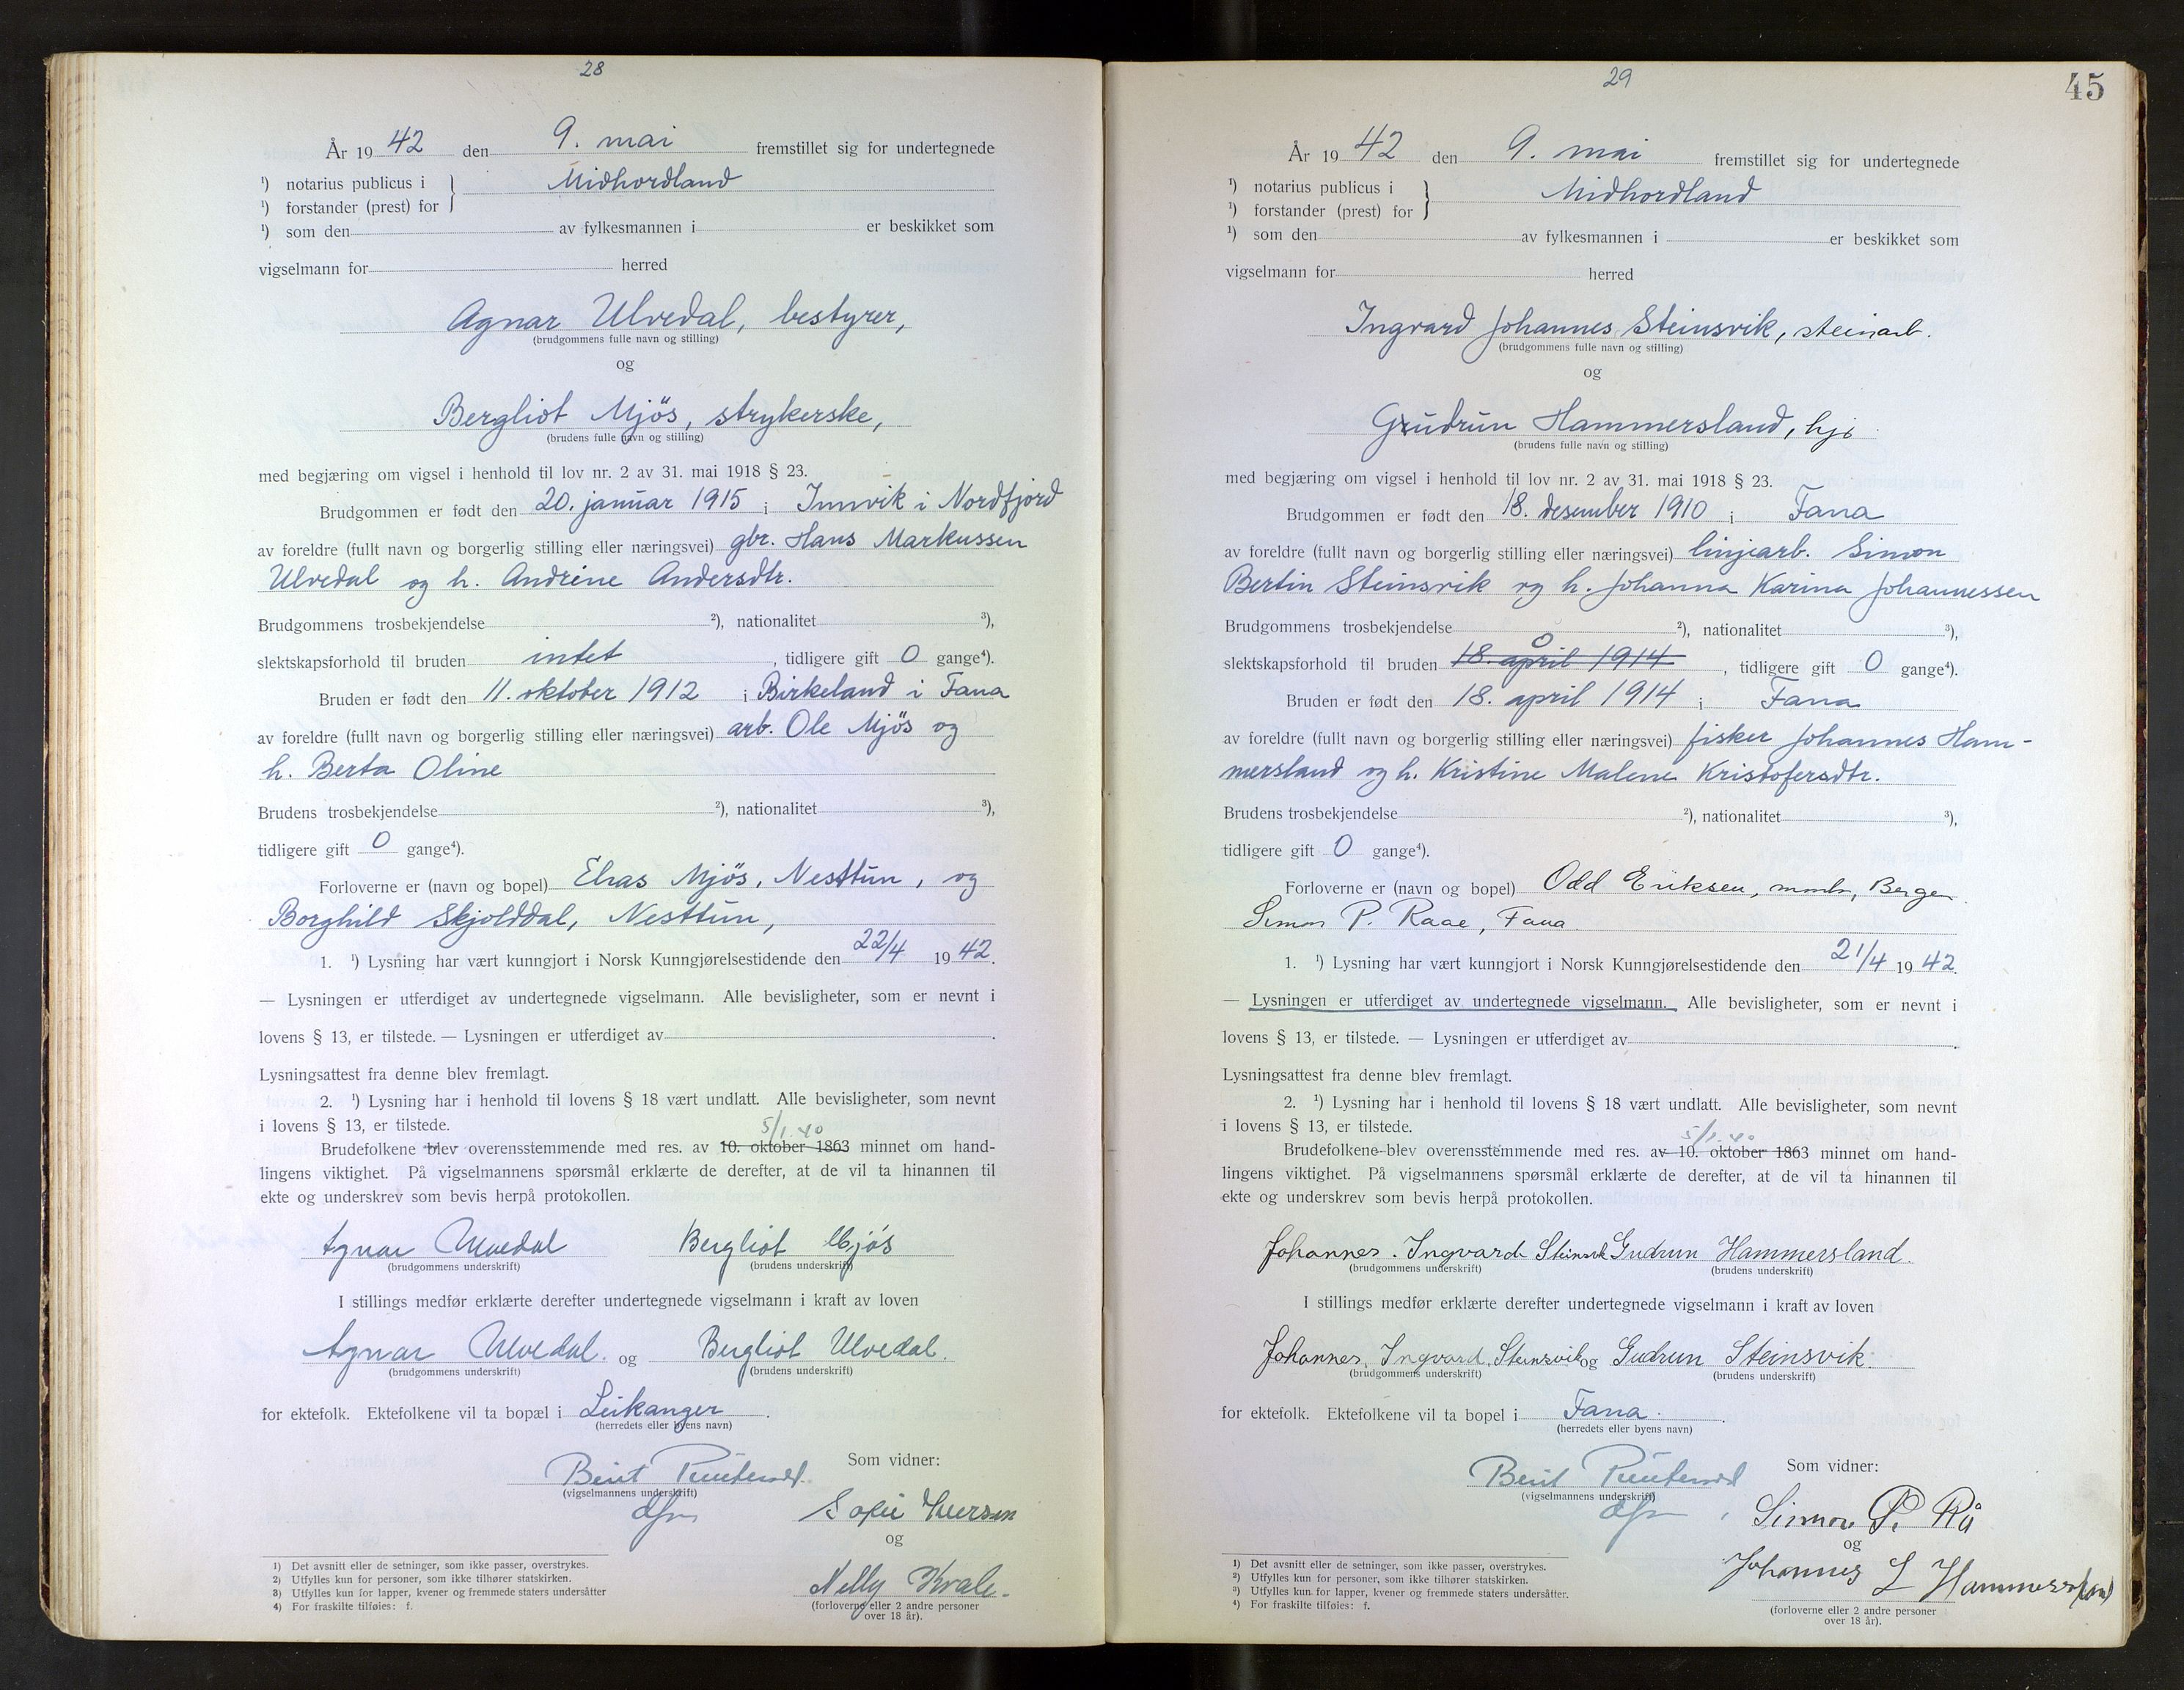 28
År 19 42 den 9. mai fremstillet sig for undertegnede
¹) notarius publicus i } Midhordland
¹) forstander (prest) for
¹) som den av fylkesmannen i er beskikket som
vigselmann for herred
Agnar Ulvedal, bestyrer,
(brudgommens fulle navn og stilling)
og
Bergliot Mjös, strykerske,
(brudens fulle navn og stilling)
med begjæring om vigsel i henhold til lov nr. 2 av 31. mai 1918 § 23.
Brudgommen er født den 20. januar 1915 i Innvik i Nordfjord
av foreldre (fullt navn og borgerlig stilling eller næringsvei) gbr. Hans Markussen
Ulvedal og h. Andrine Andersdtr.
Brudgommens trosbekjendelse ²), nationalitet ³),
slektskapsforhold til bruden intet, tidligere gift 0 gange⁴).
Bruden er født den 11. oktober 1912 i Birkeland i Fana
av foreldre (fullt navn og borgerlig stilling eller næringsvei) arb. Ole Mjös og
h. Berta Oline
Brudens trosbekjendelse ²), nationalitet ³),
tidligere gift 0 gange⁴).
Forloverne er (navn og bopel) Elias Mjös, Nesttun, og
Borghild Skjolddal, Nesttun,
1. ¹) Lysning har vært kunngjort i Norsk Kunngjørelsestidende den 22/4 19 42.
— Lysningen er utferdiget av undertegnede vigselmann. Alle bevisligheter, som er nevnt i
lovens § 13, er tilstede. — Lysningen er utferdiget av .
Lysningsattest fra denne blev fremlagt.
2. ¹) Lysning har i henhold til lovens § 18 vært undlatt. Alle bevisligheter, som nevnt
i lovens § 13, er tilstede.
5/1.40
Brudefolkene blev overensstemmende med res. av 10. oktober 1863 minnet om hand-
lingens viktighet. På vigselmannens spørsmål erklærte de derefter, at de vil ta hinannen til
ekte og underskrev som bevis herpå protokollen.
Agnar Ulvedal Bergliot Mjøs
(brudgommens underskrift) (brudens underskrift)
I stillings medfør erklærte derefter undertegnede vigselmann i kraft av loven
Agnar Ulvedal. og Bergliot Ulvedal.
(brudgommens underskrift) (brudens underskrift)
for ektefolk. Ektefolkene vil ta bopæl i Leikanger.
(herredets eller byens navn)
Som vidner:
Berit
(vigselmannens underskrift)
Sofie Iversen
og
Nelly Kvale.
(forloverne eller 2 andre personer
over 18 år).
1) Det avsnitt eller de setninger, som ikke passer, overstrykes.
2) Utfylles kun for personer, som ikke tilhører statskirken.
3) Utfylles kun for lapper, kvener og fremmede staters undersåtter
4) For fraskilte tilføies: f.
29
45
År 19 42 den 9. mai fremstillet sig for undertegnede
¹) notarius publicus i } Midhordland
¹) forstander (prest) for
¹) som den av fylkesmannen i er beskikket som
vigselmann for herred
Ingvard Johannes Steinsvik, steinarb.
(brudgommens fulle navn og stilling)
og
Gudrun Hammersland, hjs
(brudens fulle navn og stilling)
med begjæring om vigsel i henhold til lov nr. 2 av 31. mai 1918 § 23.
Brudgommen er født den 18. desember 1910 i Fana
av foreldre (fullt navn og borgerlig stilling eller næringsvei) linjearb. Simon
Bertin Steinsvik og h. Johanna Karina Johannessen
Brudgommens trosbekjendelse ²), nationalitet ³),
0
slektskapsforhold til bruden 18. april 1914, tidligere gift 0 gange⁴).
Bruden er født den 18. april 1914 i Fana
av foreldre (fullt navn og borgerlig stilling eller næringsvei) fisker Johannes Ham-
mersland og h. Kristine Malene Kristofersdtr.
Brudens trosbekjendelse ²), nationalitet ³),
tidligere gift 0 gange⁴).
Forloverne er (navn og bopel) Odd Eriksen, Bergen.
Simon P. Raae, Fana.
1. ¹) Lysning har vært kunngjort i Norsk Kunngjørelsestidende den 21/4 19 42.
— Lysningen er utferdiget av undertegnede vigselmann. Alle bevisligheter, som er nevnt i
lovens § 13, er tilstede. — Lysningen er utferdiget av .
Lysningsattest fra denne blev fremlagt.
2. ¹) Lysning har i henhold til lovens § 18 vært undlatt. Alle bevisligheter, som nevnt
i lovens § 13, er tilstede.
5/1.40
Brudefolkene blev overensstemmende med res. av 10. oktober 1863 minnet om hand-
lingens viktighet. På vigselmannens spørsmål erklærte de derefter, at de vil ta hinannen til
ekte og underskrev som bevis herpå protokollen.
Johannes. Ingvard Steinsvik Gudrun Hammersland.
(brudgommens underskrift) (brudens underskrift)
I stillings medfør erklærte derefter undertegnede vigselmann i kraft av loven
Johannes, Ingvard, Steinsvik og Gudrun Steinsvik.
(brudgommens underskrift) (brudens underskrift)
for ektefolk. Ektefolkene vil ta bopel i Fana.
(herredets eller byens navn)
Som vidner:
Berit
(vigselmannens underskrift)
Simon P. Rå
og
Johannes L Hammersland
(forloverne eller 2 andre personer
over 18 år).
¹) Det avsnitt eller de setninger, som ikke passer, overstrykes.
²) Utfylles kun for personer, som ikke tilhører statskirken.
³) Utfylles kun for lapper, kvener og fremmede staters undersåtter.
⁴) For fraskilte tilføies: f.